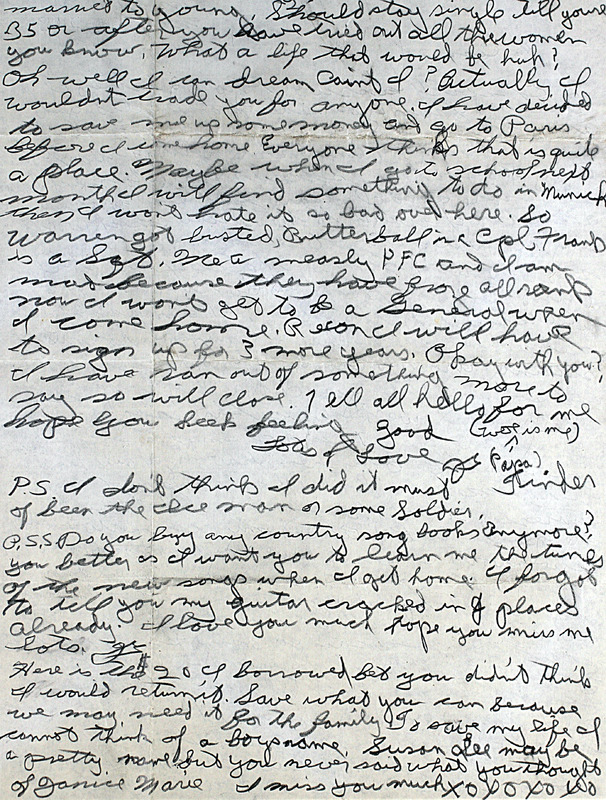 married to young. Should stay single till your
35 or after you have tried out all the women
you know. What a life that would be huh?
Oh well I can dream cain't I? Actually I
wouldn't trade you for anyone. I have decided
to save me up some money and go to Paris
before I come home. Everyone thinks that is quite
a place. Maybe when I go to school next
month I will find something to do in Munich
then I wont hate it so bad over here. So
Warren got busted, Butterball is a Cpl, Frank
is a Sgt. Me a measly PFC and I am
mad because they have froze all rank
now I wont get to be a General when
I come home. Reson I will have
to sign up for 3 more years. Okay with you?
I have ran out of something more to
say so will close. Tell all hello for me
hope you keep feeling good (woe is me)
Lots of Love
(Papa)
P.S. I dont think I did it must
of been the ice man or some Soldier.
P.S.S Do you buy any country song books anymore?
you better as I want you to learn me the tunes
of the new songs when I get home. I forgot
to tell you my guitar cracked in places
already. I love you much hope you miss me
lots.
Here is the $20 I borrowed bet you didn't think
I would return it. Save what you can because
we may need it for the family. To save my life I
cannot think of a boys name. Susan Lee may be
a pretty name but you never said what you thought
of Janice Marie I miss you much XOXOXOXO